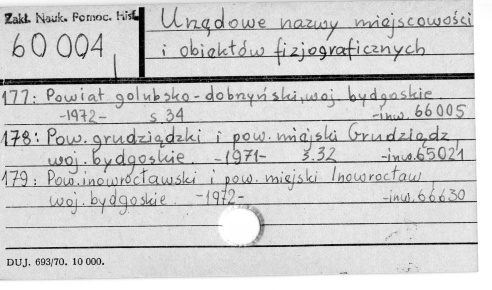 Zakł. Nauk. Pomoc. Hist.
60 004
Urzędowe nazwy miejscowości
i obiektów fizjograficznych
177: Powiat golubsko-dobrzyński, woj. bydgoskie
-1972- s. 34 -inw. 66005
178: Pow. grudziądzki i pow. miejski Grudziądz,
woj. bydgoskie -1971- s. 32 -inw. 65021
179: Pow. inowrocławski i pow. miejski Inowrocław
woj. bydgoskie. -1972- -inw. 66630
DUJ. 693/70. 10 000.